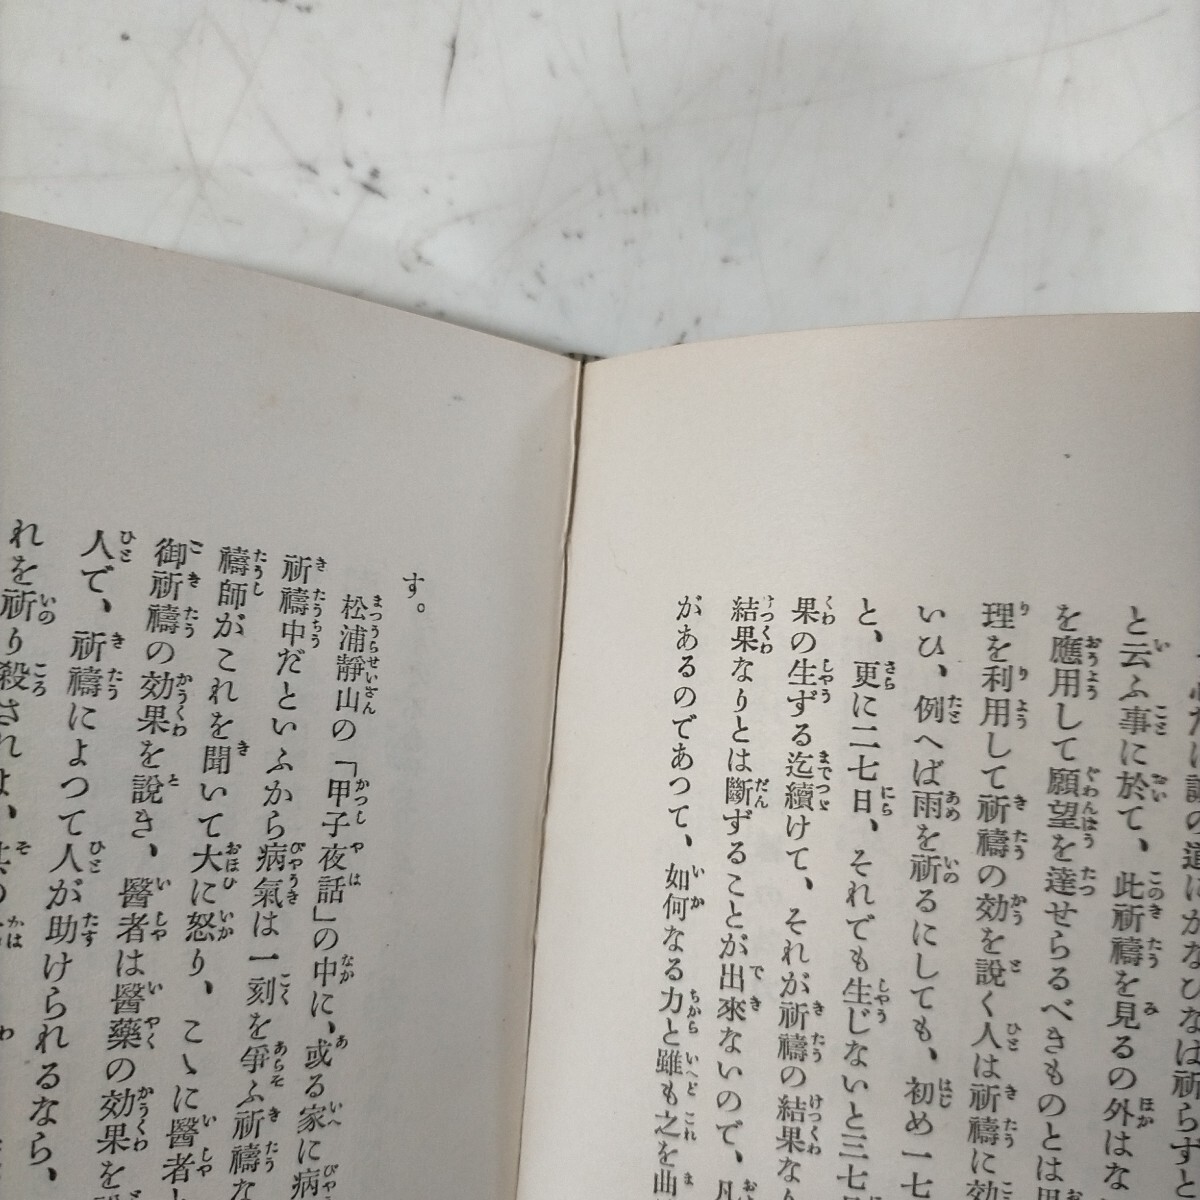 だに誠の道にかなひなは祈らずと
と云ふ事に於て、此祈禱を見るの外はな
を應用して願望を達せらるべきものとは
理を利用して祈禱の効を說く人は祈禱に効
いひ、例へば雨を祈るにしても、初め一七
と、更に二七日、それでも生じないと三七
果の生ずる迄續けて、それが祈禱の結果な
結果なりとは斷ずることが出來ないので、凡
があるのであつて、如何なる力と雖も之を曲
す。
松浦靜山の「甲子夜話」の中に、或る家に病
祈禱中だといふから病氣は一刻を爭ふ祈禱な
禱師がこれを聞いて大に怒り、こゝに醫者
御祈禱の効果を說き、醫者は醫藥の効果を
人で、祈禱によつて人が助けられるなら、
れを祈り殺されよ、其の